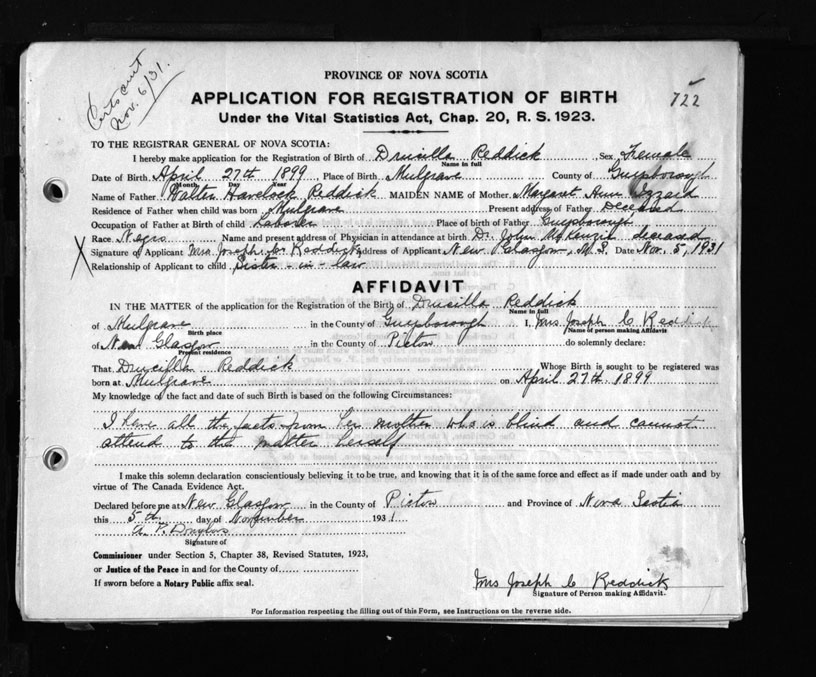 Certs sent
Nov. 6/31.
722
PROVINCE OF NOVA SCOTIA
APPLICATION FOR REGISTRATION OF BIRTH
Under the Vital Statistics Act, Chap. 20, R. S. 1923.
TO THE REGISTRAR GENERAL OF NOVA SCOTIA:
I hereby make application for the Registration of Birth of Drucilla Reddick Sex Female
Name in full
Date of Birth April 27th 1899 Place of Birth Mulgrave County of Guysborough
Month Day Year
Name of Father Walter Havelock Reddick MAIDEN NAME of Mother Margaret Ann Izzard
Residence of Father when child was born Mulgrave Present address of Father Deceased
Occupation of Father at Birth of child Laborer Place of birth of Father Guysborough
Race Negro Name and present address of Physician in attendance at birth Dr. John McKenzie deceased
X Signature of Applicant Mrs Joseph C Reddick Address of Applicant New Glasgow, N. S. Date Nov. 5, 1931
Relationship of Applicant to child Sister-in-law
AFFIDAVIT
IN THE MATTER of the application for the Registration of the Birth of Drucilla Reddick
Name in full
of Mulgrave in the County of Guysborough I, Mrs Joseph C Reddick
Birth place Name of person making Affidavit
of New Glasgow in the County of Pictou do solemnly declare:
Present residence
That Drucilla Reddick Whose Birth is sought to be registered was
born at Mulgrave on April 27th 1899
My knowledge of the fact and date of such Birth is based on the following Circumstances:
I have all the facts from her mother who is blind and cannot
attend to the matter herself
I make this solemn declaration conscientiously believing it to be true, and knowing that it is of the same force and effect as if made under oath and by
virtue of The Canada Evidence Act.
Declared before me at New Glasgow in the County of Pictou and Province of Nova Scotia
this 5th day of November 1931
A. P. Douglas
Signature of
Commissioner under Section 5, Chapter 38, Revised Statutes, 1923,
or Justice of the Peace in and for the County of
If sworn before a Notary Public affix seal.
Mrs Joseph C Reddick
Signature of Person making Affidavit.
For Information respecting the filling out of this Form, see Instructions on the reverse side.